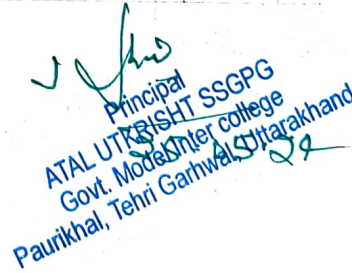 Principal
ATAL UTKRISHT SSGPG
Govt. Model Inter college
Paurikhal, Tehri Garhwal, Uttarakhand